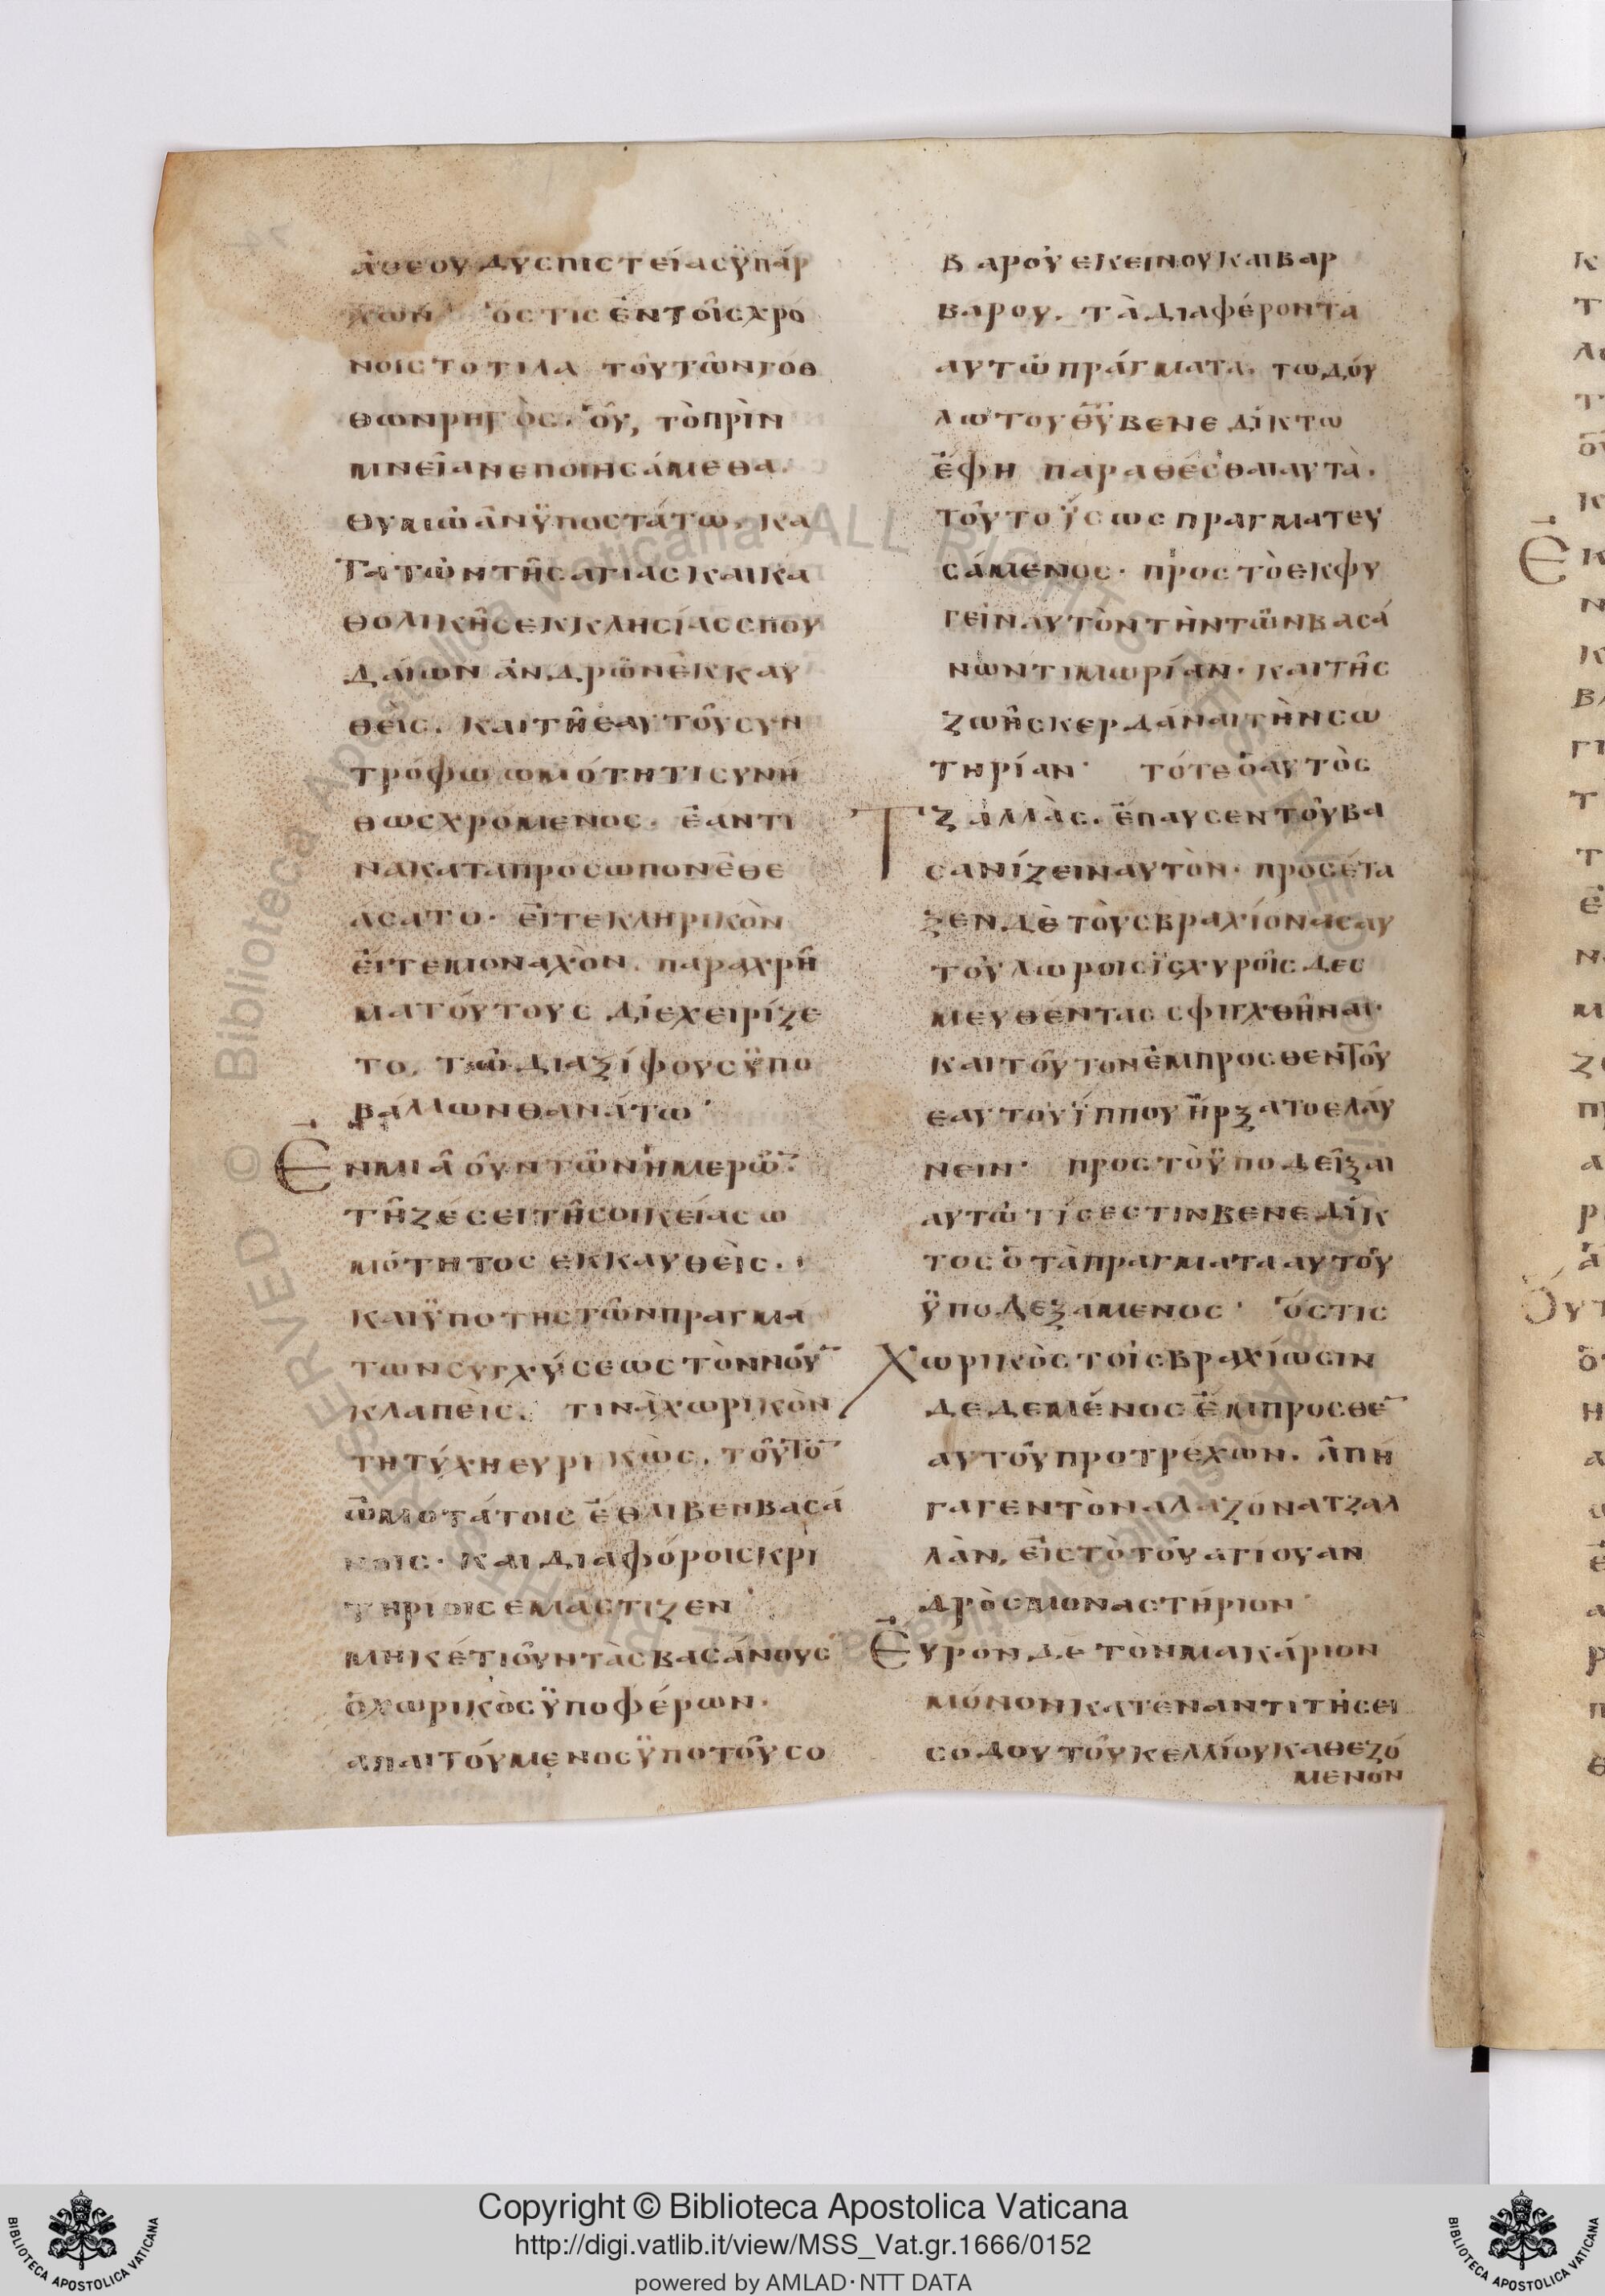 ἀθεου δυσπιστείας ϋπάρ
χων ὅστις ἐν τοῖς χρό
νοις τοτιλα τοῦ τῶν γόθ
θων ρηγὸς. οὗ, τὸ πρὶν
μνείαν εποιησάμεθα.
θυμῶ ἀνϋποστάτω, κα
τα τῶν τῆς αγίας και κα
θολικῆς εκκλησίας σπου
δαίων ἀνδρῶν ἐκκαυ
θεὶς. και τῆ εαυτοῦ συν
τρόφω ωμότητι συνή
θως χρομενος. ἐάν τι
να κατα προσωπον ἐθε
ασατο. εἴτε κληρικὸν
εἴτε μοναχὸν. παραχρῆ
μα τούτους διεχειρίζε
το. τῶ δια ξίφους ϋπο
βάλλων θανάτω·
Ἐν μιᾶ οὖν τῶν ἡμερῶ
τῆ ζέσει τῆς οικείας ω
μότητος εκκαυθεὶς.
και ϋπο της τῶν πραγμά
των συγχύσεως τὸν νοῦ
κλαπεὶς. τινὰ χωρικὸν
τη τύχη ευρικὼς. τοῦτο
ὠμοτάτοις ἔθλιβεν βασά
νοις. και διαφόροις κρι
τηρίοις εμάστιζεν·
μηκέτι οὖν τὰς βασάνους
ὁ χωρικὸς ϋποφέρων.
απαιτούμενος ϋπο τοῦ σο
βαροῦ εκείνου και βαρ
βαρου. τὰ διαφέροντα
αυτῶ πράγματα. τω δού
λω του θῦ βενεδίκτω
ἔφη παραθέσθαι αυτὰ.
τοῦτο ΐσως πραγματευ
σάμενος. πρὸς τὸ εκφυ
γεῖν αυτὸν τὴν τῶν βασά
νων τιμωρίαν. και τῆς
ζωῆς κερδάναι τὴν σω
τηρίαν· τότε ὁ αυτὸς
Τζαλλὰς. ἔπαυσεν τοῦ βα
σανίζειν αυτὸν. προσέτα
ξεν δὲ τοὺς βραχίονας αυ
τοῦ λωροις ΐσχυροῖς δεσ
μευθέντας σφιγχθῆναι.
και τοῦτον ἔμπροσθεν τοῦ
εαυτοῦ ΐππου ἤρξατο ελαύ
νειν. προς τὸ ϋποδεῖξαι
αυτῶ τίς εστιν βενεδίκ
τος ὁ τὰ πραγματα αυτοῦ
ϋποδεξάμενος. ὅστις
Χωρικὸς τοῖς βραχίωσιν
δεδεμένος ἔμπροσθε
αυτοῦ προτρέχων. ἀπή
γαγεν τὸν αλαζόνα τζαλ
λὰν, εἰς τὸ τοῦ αγίου αν
δρὸς μοναστήριον·
Ἐυρον δε τὸν μακάριον
μόνον κατέναντι τῆς ει
σοδου τοῦ κελλίου καθεζό
μενον
Copyright © Biblioteca Apostolica Vaticana
http://digi.vatlib.it/view/MSS_Vat.gr.1666/0152
powered by AMLAD·NTT DATA